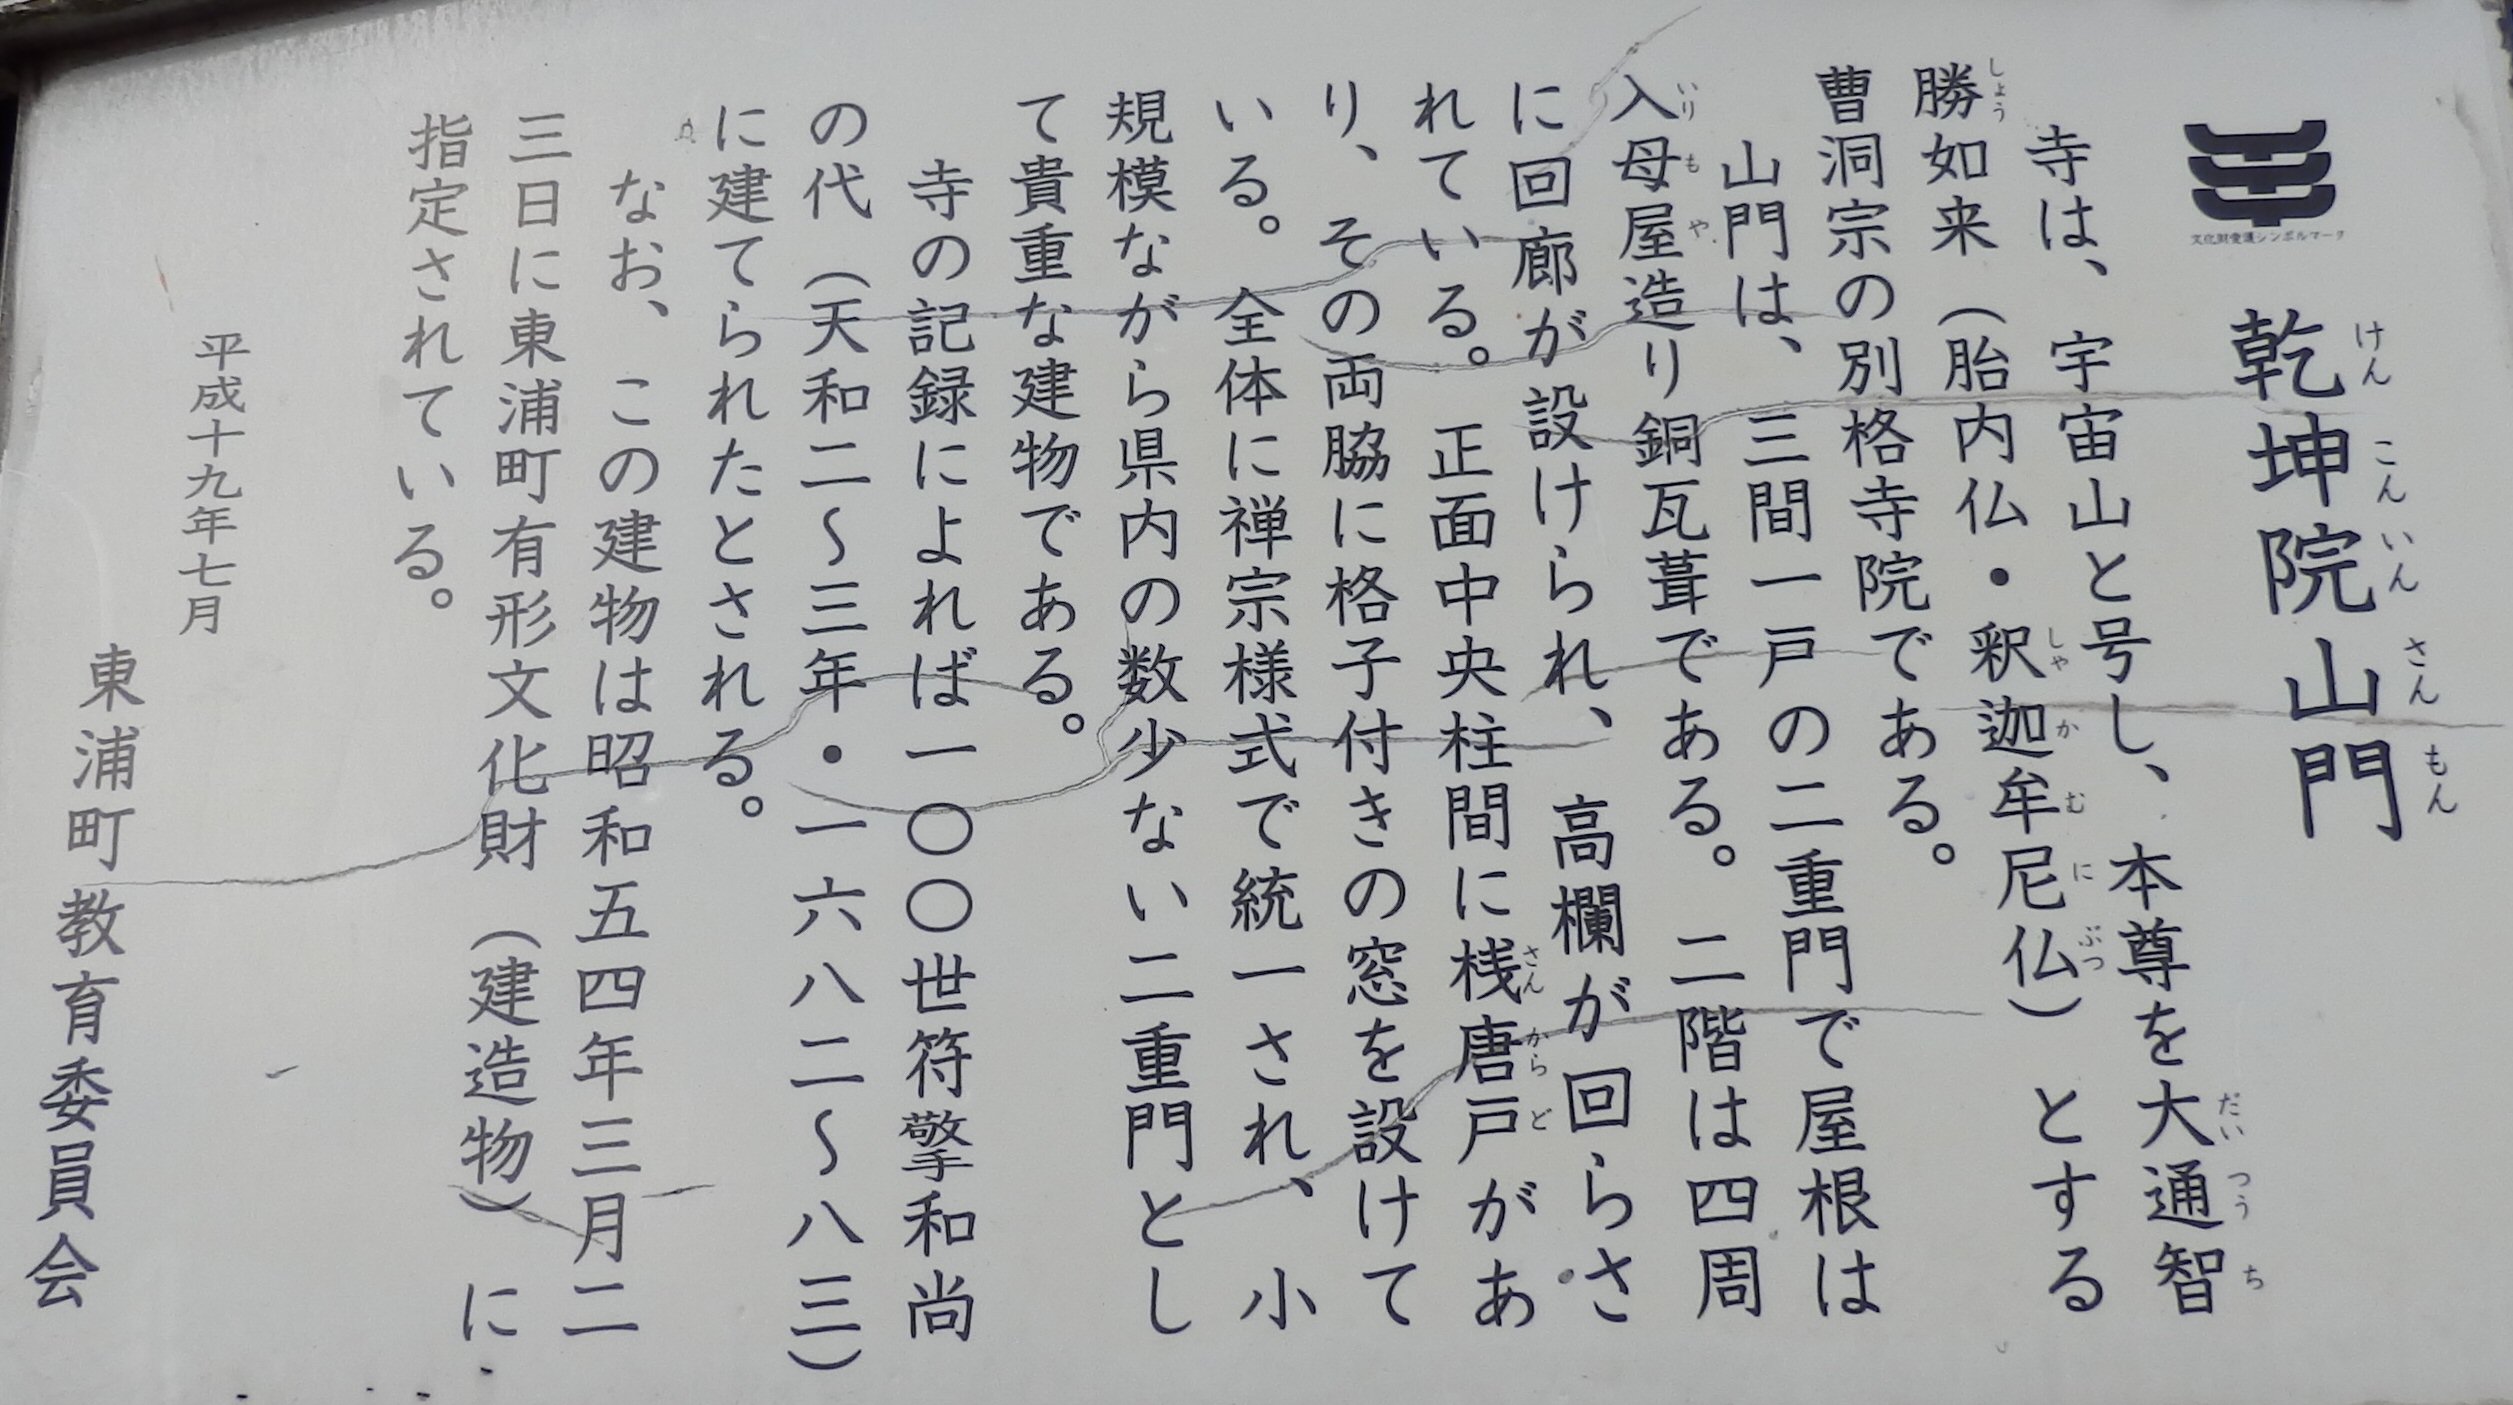 文化財愛護シンボルマーク
乾坤院山門
けんこんいんさんもん
寺は、宇宙山と号し、本尊を大通智
だいつうち
勝如来（胎内仏・釈迦牟尼仏）とする
しょう しゃかむにぶつ
曹洞宗の別格寺院である。
山門は、三間一戸の二重門で屋根は
入母屋造り銅瓦葺である。二階は四周
いりもや
に回廊が設けられ、高欄が回らさ
れている。正面中央柱間に桟唐戸があ
さんからど
り、その両脇に格子付きの窓を設けて
いる。全体に禅宗様式で統一され、小
規模ながら県内の数少ない二重門とし
て貴重な建物である。
寺の記録によれば一〇〇世符擎和尚
の代（天和二～三年・一六八二～八三）
に建てられたとされる。
なお、この建物は昭和五四年三月二
三日に東浦町有形文化財（建造物）に
指定されている。
平成十九年七月
東浦町教育委員会